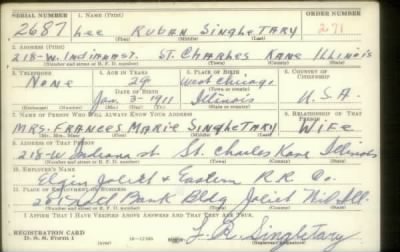 SERIAL NUMBER 1. NAME (Print) ORDER NUMBER
2687 Lee RUBAN SINGLETARY 271
2. ADDRESS (Print)
218-W. Indiana st. ST. CHARLES KANE ILLINOIS
(Number and street or R. F. D. number) (Town) (County) (State)
3. TELEPHONE 4. AGE IN YEARS 5. PLACE OF BIRTH 6. COUNTRY OF CITIZENSHIP
None 29 West Chicago
DATE OF BIRTH (Town or county)
Jan. 3-1911 Illinois U.S.A.
(Exchange) (Number) (Mo.) (Day) (Yr.) (State or country)
7. NAME OF PERSON WHO WILL ALWAYS KNOW YOUR ADDRESS 8. RELATIONSHIP OF THAT PERSON
MRS. FRANCES MARIE SINGLETARY WIFE
(Mr., Mrs., Miss) (First) (Middle) (Last)
9. ADDRESS OF THAT PERSON
218-W Indiana st. St. Charles Kane Illinois
(Number and street or R. F. D. number) (Town) (County) (State)
10. EMPLOYER'S NAME
Elgin Joliet & Eastern R.R. Co.
11. PLACE OF EMPLOYMENT OR BUSINESS
Bank Bldg Joliet Will Ill.
(Number and street or R. F. D. number) (Town) (County) (State)
I AFFIRM THAT I HAVE VERIFIED ABOVE ANSWERS AND THAT THEY ARE TRUE.
REGISTRATION CARD
D. S. S. Form 1 L. R. Singletary
(Registrant's signature)